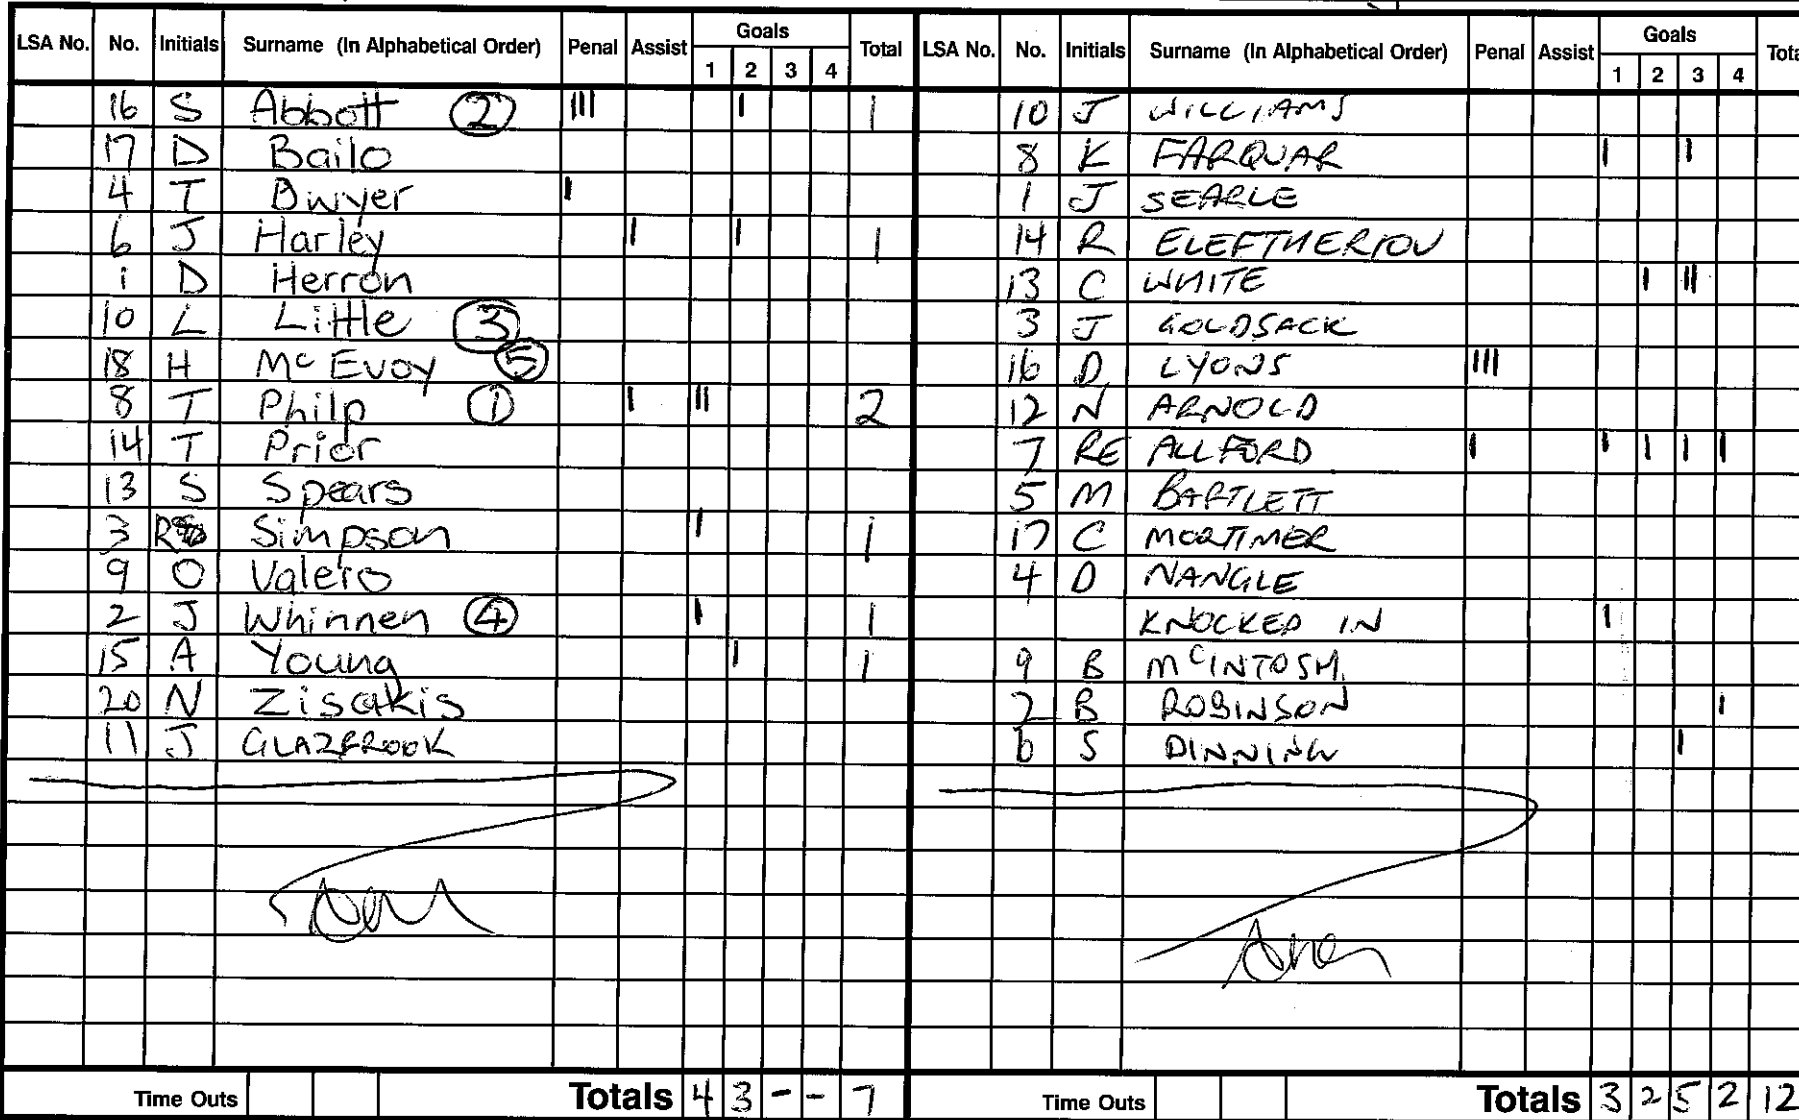 LSA No. No. Initials Surname (In Alphabetical Order) Penal Assist Goals 1 2 3 4 Total
16 S Abbott ② III I 1
17 D Bailo
4 T Dwyer I
6 J Harley I I 1
1 D Herron
10 L Little ③
18 H Mc Evoy ⑤
8 T Philp ① I II 2
14 T Prior
13 S Spears
3 R Simpson I 1
9 O Valero
2 J Whinnen ④ I 1
15 A Young I 1
20 N Zisakis
11 J GLAZBROOK
Time Outs Totals 4 3 - - 7
LSA No. No. Initials Surname (In Alphabetical Order) Penal Assist Goals 1 2 3 4 Tota
10 J WILLIAMS
8 K FARQUAR I II
1 J SEARLE
14 R ELEFTHERIOU
13 C WHITE I II
3 J GOLDSACK
16 D LYONS III
12 N ARNOLD
7 RE ALLFORD I I I I I
5 M BARTLETT
17 C MORTIMER
4 D NANGLE
KNOCKED IN I
9 B MCINTOSH
2 B ROBINSON I
6 S DINNING I
Time Outs Totals 3 2 5 2 12